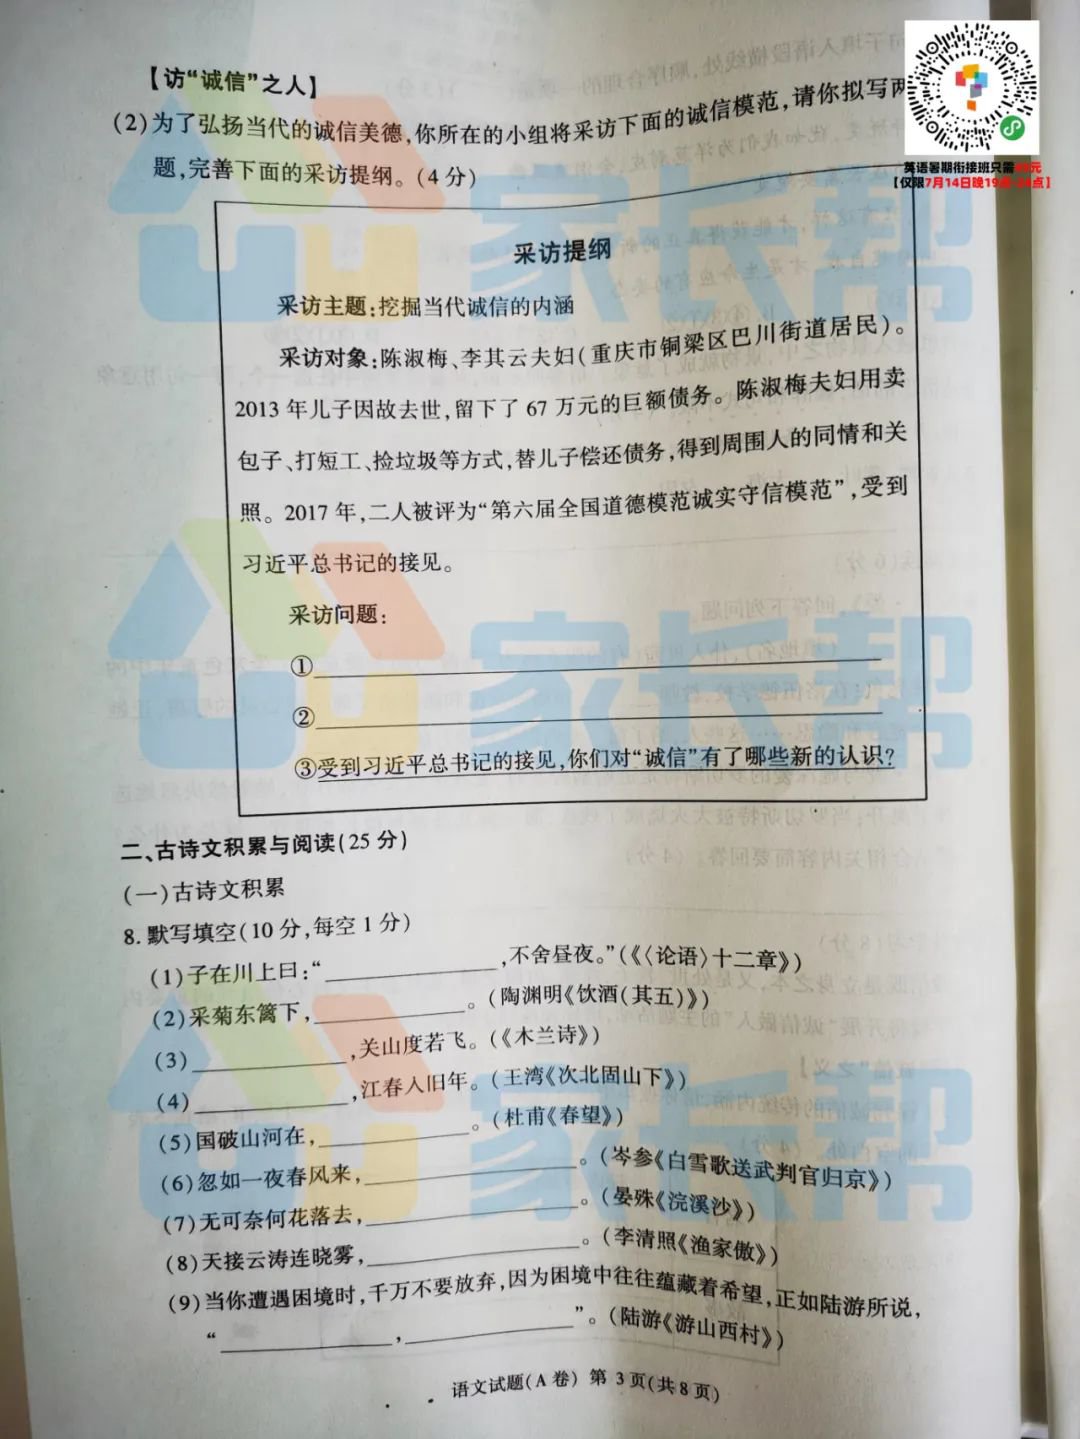 【访“诚信”之人】
(2)为了弘扬当代的诚信美德,你所在的小组将采访下面的诚信模范,请你拟写两
题,完善下面的采访提纲。(4分)
采访提纲
采访主题:挖掘当代诚信的内涵
采访对象:陈淑梅、李其云夫妇(重庆市铜梁区巴川街道居民)。
2013年儿子因故去世,留下了67万元的巨额债务。陈淑梅夫妇用卖
包子、打短工、捡垃圾等方式,替儿子偿还债务,得到周围人的同情和关
照。2017年,二人被评为“第六届全国道德模范诚实守信模范”,受到
习近平总书记的接见。
采访问题:
①
②
③受到习近平总书记的接见,你们对“诚信”有了哪些新的认识?
二、古诗文积累与阅读(25分)
(一)古诗文积累
8.默写填空(10分,每空1分)
(1)子在川上曰:“____________,不舍昼夜。”(《〈论语〉十二章》)
(2)采菊东篱下,____________。(陶渊明《饮酒(其五)》)
(3)____________,关山度若飞。(《木兰诗》)
(4)____________,江春入旧年。(王湾《次北固山下》)
(5)国破山河在,____________。(杜甫《春望》)
(6)忽如一夜春风来,____________。(岑参《白雪歌送武判官归京》)
(7)无可奈何花落去,____________。(晏殊《浣溪沙》)
(8)天接云涛连晓雾,____________。(李清照《渔家傲》)
(9)当你遭遇困境时,千万不要放弃,因为困境中往往蕴藏着希望,正如陆游所说,
“____________,____________”。(陆游《游山西村》)
语文试题(A卷) 第 3 页(共8页)
英语暑期衔接班只需 元
【仅限7月14日晚19点- 点】
家长帮
家长帮
家长帮